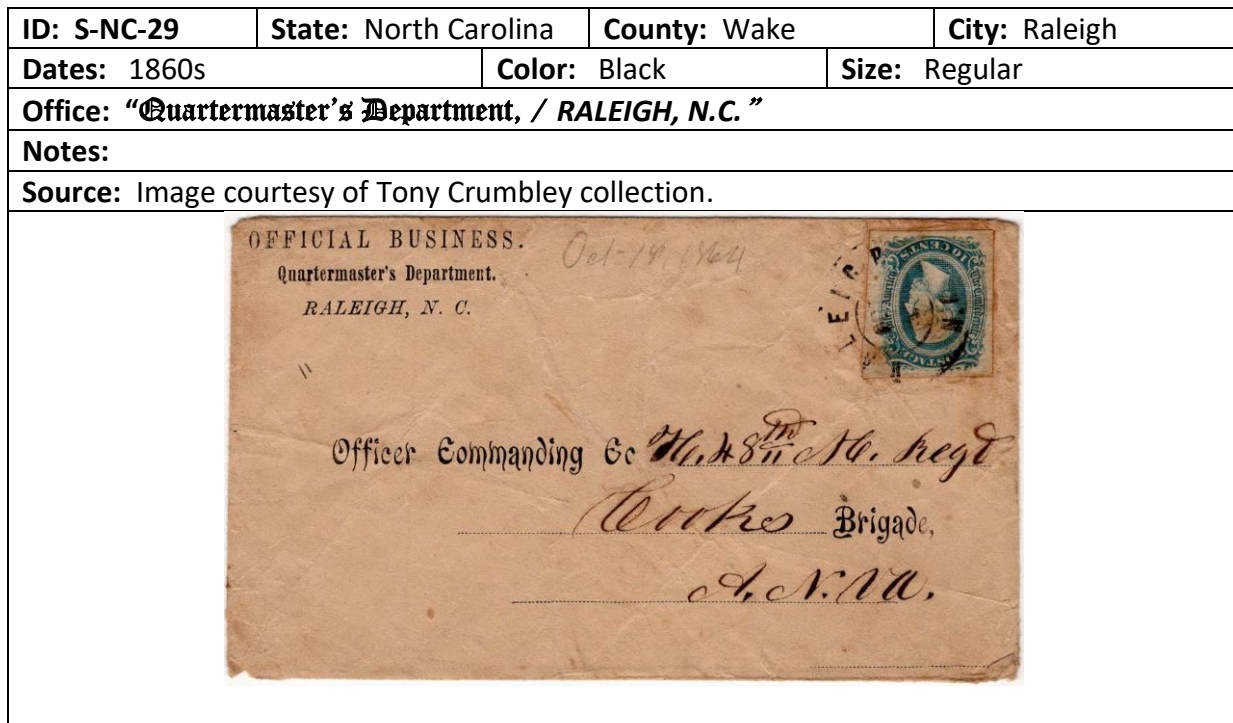 ID: S-NC-29 State: North Carolina County: Wake City: Raleigh
Dates: 1860s Color: Black Size: Regular
Office: “Quartermaster’s Department, / RALEIGH, N.C.”
Notes:
Source: Image courtesy of Tony Crumbley collection.
OFFICIAL BUSINESS.
Quartermaster's Department.
RALEIGH, N. C.
Oct-18, 1864
TEN CENTS
Officer Commanding Co H, 48th N.C. Regt
Cookes Brigade,
A. N. Va.